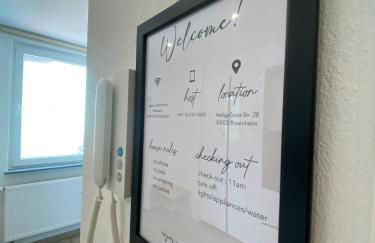 Welcome!
host
location
Heilig-Geist-Str. 28
83022 Rosenheim
house rules
checking out
no shoes
no pets
no smoking
no parties
check-out : 11am
turn off:
lights/appliances/water